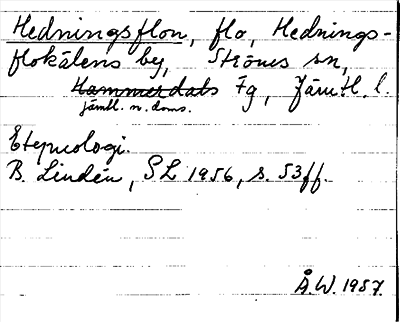 Hedningsflon, flo, Hednings-
flokälens by, Ströms sn,
Hammerdals Fg, Jämtl. l.
jämtl. n. doms.
Etymologi.
B. Lindén, SL 1956, s. 53ff.
Å.W. 1957.